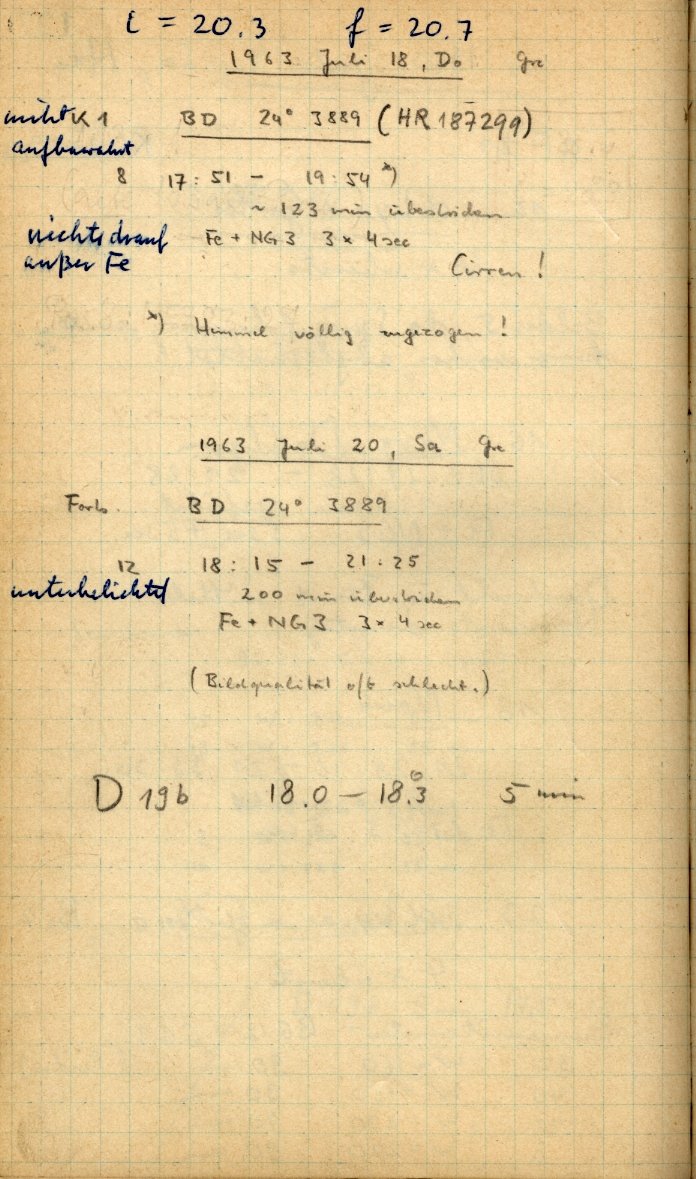 i = 20.3 f = 20.7
1963 Juli 18, Do Gre
nicht K1 BD 24° 3889 (HR 187299)
aufbewahrt
8 17:51 - 19:54 *)
~ 123 min überstrichen
nichts drauf Fe + NG3 3 × 4 sec
außer Fe Cirren!
*) Himmel völlig zugezogen!
1963 Juli 20, Sa Gre
Forts. BD 24° 3889
12 18:15 - 21:25
unterbelichtet 200 min überstrichen
Fe + NG3 3 × 4 sec
(Bildqualität oft schlecht.)
D 19b 18.0 - 18.°3 5 min